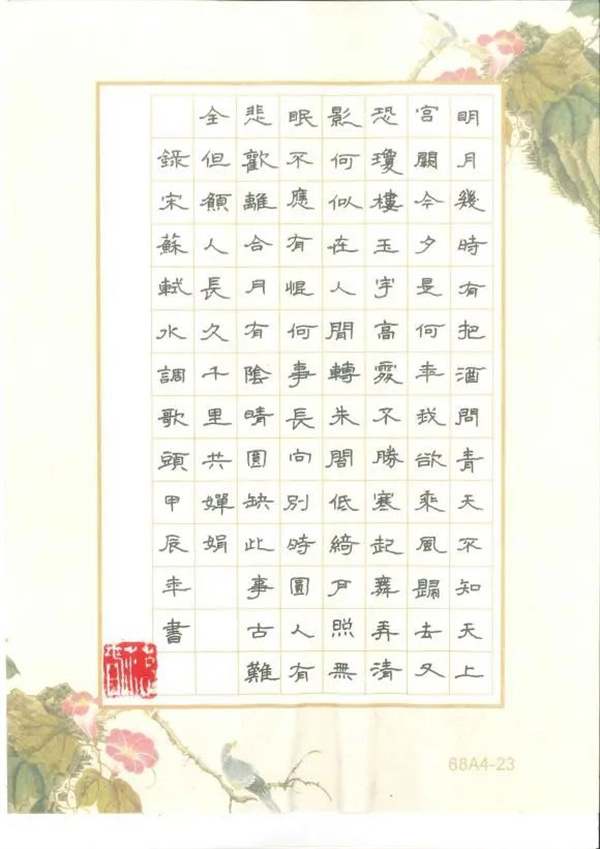 明月幾時有把酒問青天不知天上
宮闕今夕是何年我欲乘風歸去又
恐瓊樓玉宇高處不勝寒起舞弄清
影何似在人間轉朱閣低綺戶照無
眠不應有恨何事長向別時圓人有
悲歡離合月有陰晴圓缺此事古難
全但願人長久千里共嬋娟
錄宋蘇軾水調歌頭甲辰年書
68A4-23